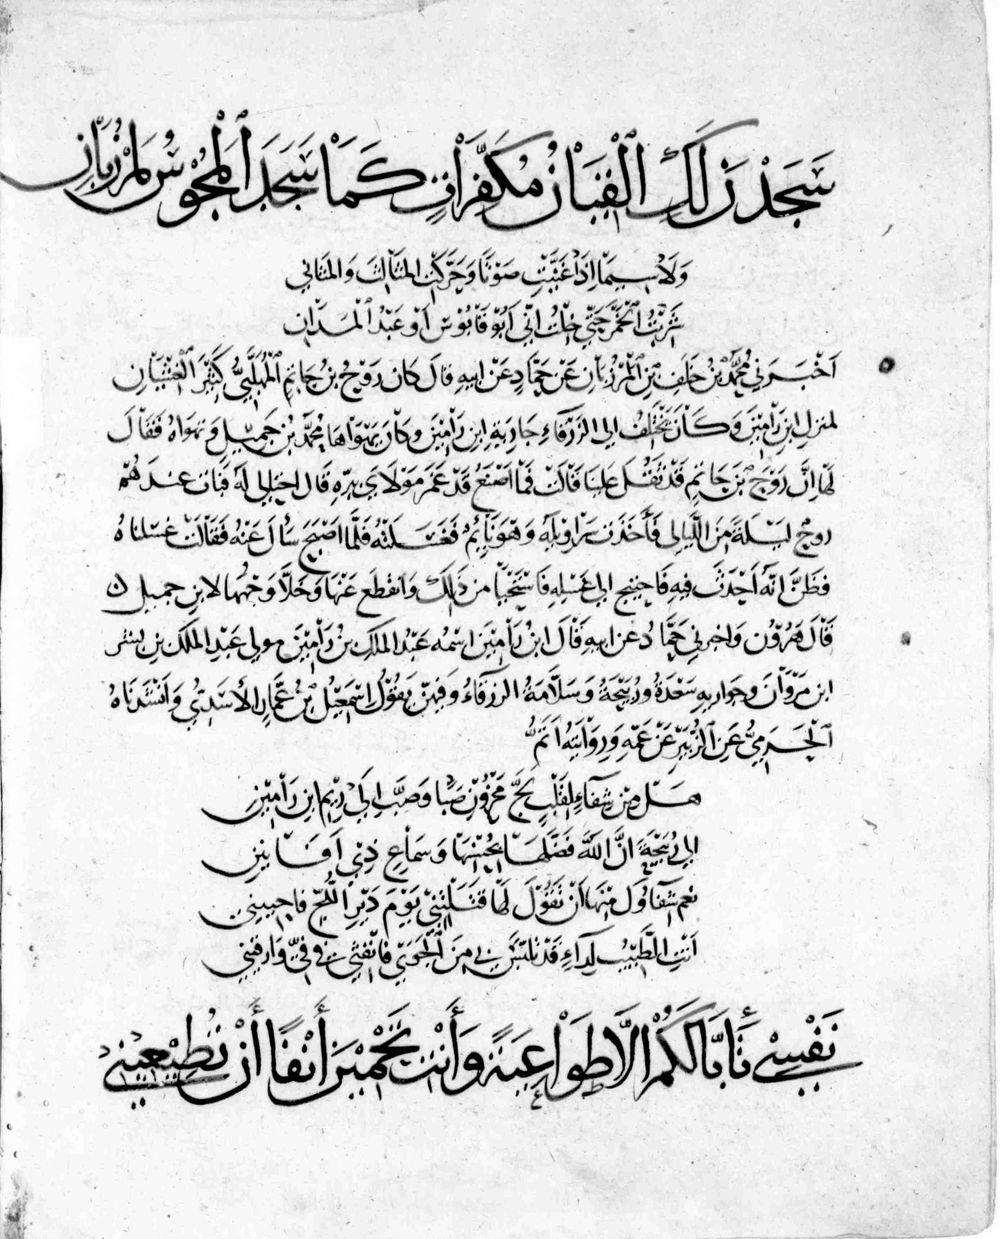 سَجَدْنَ لَكِ الْقِيَانُ مُكَفِّرَاتٍ كَمَا سَجَدَ الْمَجُوسُ لِمَرْزُبَانِ
وَلَا سِيَمَا إِذَا غَنَّيْتِ صَوْتًا وَحَرَّكْتِ الْمَثَالِثَ وَالْمَثَانِي
شَرِبْتُ الْخَمْرَ حَتَّى خِلْتُ أَنِّي أَبُو قَابُوسَ أَوْ عَبْدُ الْمَدَانِ
أَخْبَرَنِي مُحَمَّدُ بْنُ خَلَفِ بْنِ الْمَرْزُبَانِ عَنْ حَمَّادٍ عَنْ أَبِيهِ قَالَ كَانَ رَوْحُ بْنُ حَاتِمٍ الْمُهَلَّبِيُّ كَثِيرَ الْغِشْيَانِ
لِمَنْزِلِ ابْنِ رَامِينَ وَكَانَ يَخْتَلِفُ إِلَى الزَّرْقَاءِ جَارِيَةِ ابْنِ رَامِينَ وَكَانَ يَهْوَاهَا مُحَمَّدُ بْنُ جَمِيلٍ وَتَهْوَاهُ فَقَالَ
لَهَا إِنَّ رَوْحَ بْنَ حَاتِمٍ قَدْ ثَقُلَ عَلَيْنَا قَالَتْ فَمَا أَصْنَعُ قَدْ غَمَرَ مَوْلَايَ بِبِرِّهِ قَالَ احْتَالِي لَهُ فَبَاتَ عِنْدَهُمْ
رَوْحٌ لَيْلَةً مِنَ اللَّيَالِي فَأَخَذَتْ سَرَاوِيلَهُ وَهُوَ نَائِمٌ فَغَسَلَتْهُ فَلَمَّا أَصْبَحَ سَأَلَ عَنْهُ فَقَالَتْ غَسَلْنَاهُ
فَظَنَّ أَنَّهُ أَحْدَثَ فِيهِ فَاحْتِيجَ إِلَى غَسْلِهِ فَاسْتَحْيَا مِنْ ذَلِكَ وَانْقَطَعَ عَنْهَا وَخَلَا وَجْهُهَا لِابْنِ جَمِيلٍ
قَالَ هَرُونُ وَأَخْبَرَنِي حَمَّادٌ عَنْ أَبِيهِ قَالَ ابْنُ رَامِينَ اسْمُهُ عَبْدُ الْمَلِكِ بْنُ رَامِينَ مَوْلَى عَبْدِ الْمَلِكِ بْنِ بِشْرِ
ابْنِ مَرْوَانَ وَجَوَارِيهِ سَعْدَةُ وَرُبَيْحَةُ وَسَلَّامَةُ الزَّرْقَاءُ وَفِيهِنَّ يَقُولُ إِسْمَعِيلُ بْنُ عَمَّارٍ الْأَسَدِيُّ وَأَنْشَدَنَاهُ
الْحَرَمِيُّ عَنِ الزُّبَيْرِ عَنْ عَمِّهِ وَرِوَايَتُهُ أَتَمُّ
هَلْ مِنْ شِفَاءٍ لِقَلْبٍ لَجَّ مَحْزُونِ صَبَا وَصَبَّ إِلَى رِيمِ ابْنِ رَامِينِ
إِلَى رُبَيْحَةَ إِنَّ اللَّهَ فَضَّلَهَا بِحُسْنِهَا وَسَمَاعٍ ذِي أَفَانِينِ
نَعَمْ شِفَاؤُكَ مِنْهَا أَنْ تَقُولَ لَهَا قَتَلْتِنِي يَوْمَ دَيْرِ اللُّجِّ فَأَحْيِينِي
أَنْتِ الطَّبِيبُ لِدَاءٍ قَدْ تَلَبَّسَ بِي مِنَ الْجَوَى فَانْفُثِي فِي فِيَّ وَارْقِينِي
نَفْسِي تَأْبَى لَكُمْ إِلَّا طَوَاعِيَةً وَأَنْتِ تَحْمِينَ أَنْفًا أَنْ تُطِيعِينِي